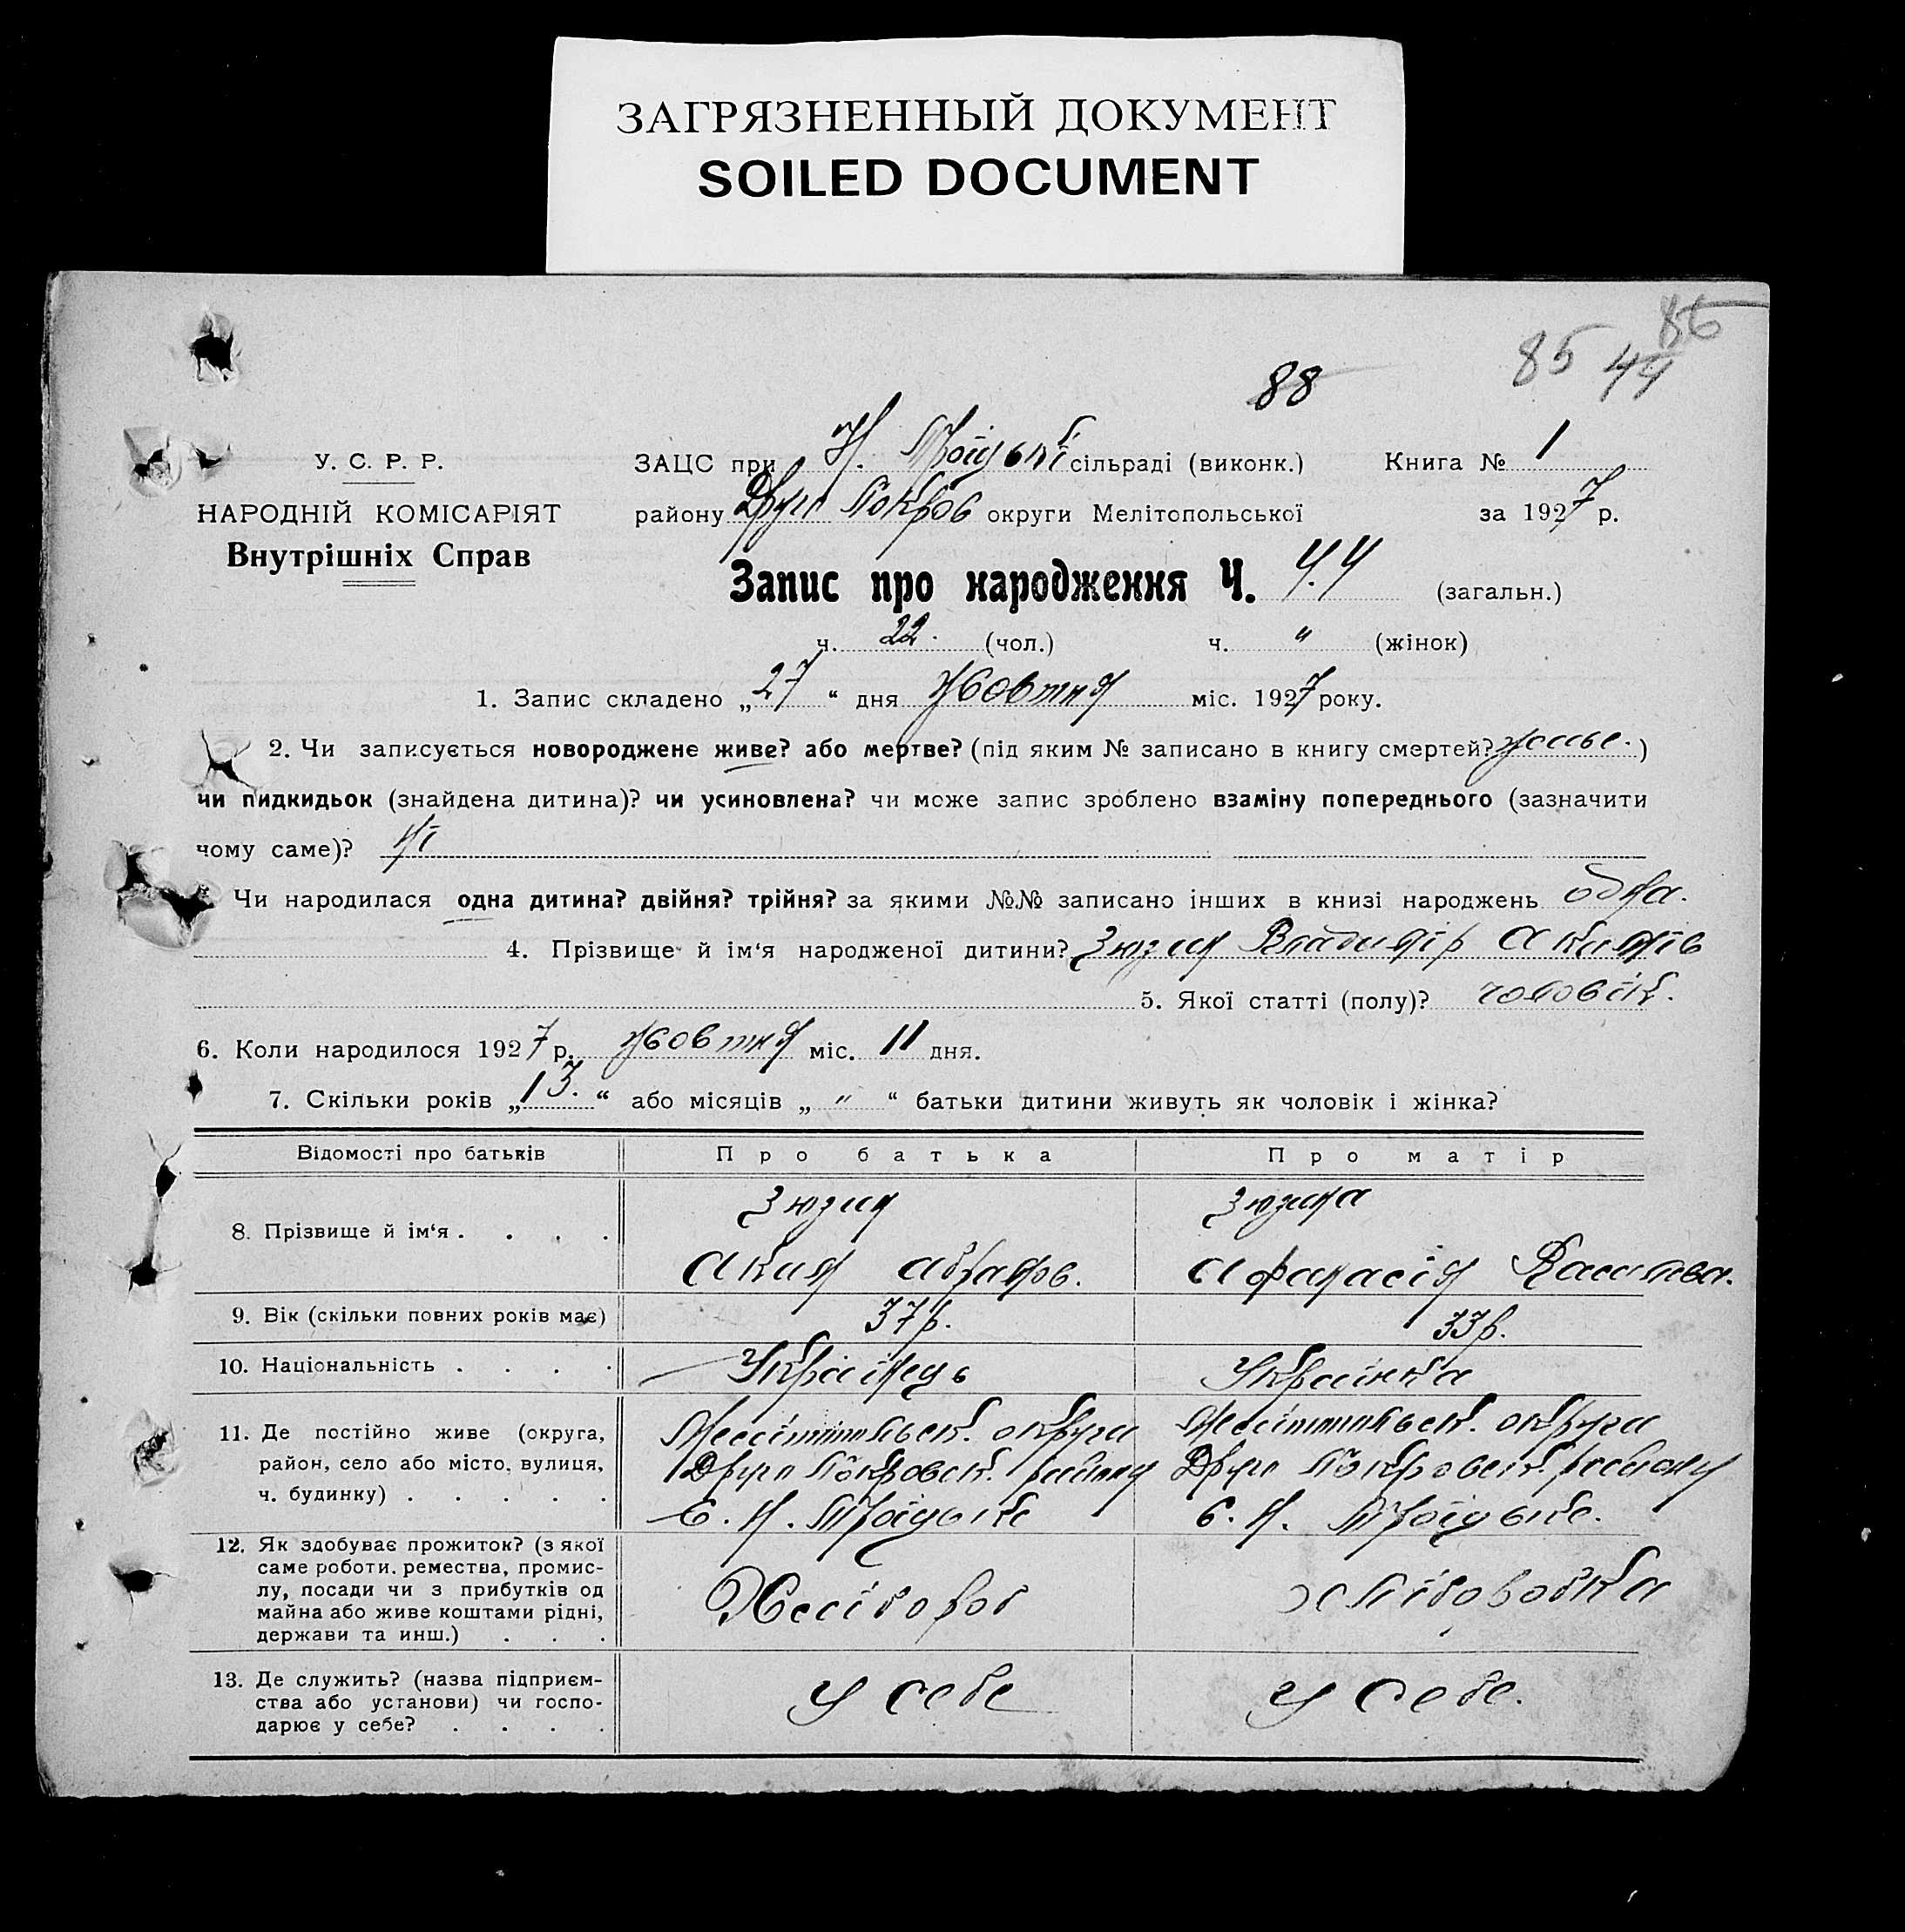 ЗАГРЯЗНЕННЫЙ ДОКУМЕНТ
SOILED DOCUMENT
86
85 44
88
У. С. Р. Р.
НАРОДНІЙ КОМІСАРІЯТ
Внутрішніх Справ
ЗАЦС при Н. Троїцькі сільраді (виконк.) Книга № 1
району Друго Покров округи Мелітопольської за 1927 р.
Запис про народження Ч. 44 (загальн.)
ч. 22. (чол.) ч. " (жінок)
1. Запис складено „27“ дня Жовтня міс. 1927 року.
2. Чи записується новороджене живе? або мертве? (під яким № записано в книгу смертей? живе.)
чи пидкидьок (знайдена дитина)? чи усиновлена? чи може запис зроблено взаміну попереднього (зазначити
чому саме)? Ні
Чи народилася одна дитина? двійня? трійня? за якими №№ записано інших в книзі народжень одна.
4. Прізвище й ім‘я народженої дитини? Зюзин Владимір Акимів
5. Якої статті (полу)? чоловік.
6. Коли народилося 1927 р. жовтня міс. 11 дня.
7. Скільки років „13.“ або місяців „ " “ батьки дитини живуть як чоловік і жінка?
Відомості про батьків Про батька Про матір
8. Прізвище й ім‘я . . . . Зюзин Зюзина
Аким Абрамов. Афанасія Васильева.
9. Вік (скільки повних років має) 37 р. 33 р.
10. Національність . . . . Українець Українка
11. Де постійно живе (округа, Мелітопільск. округи Мелітопільск. округи
район, село або місто, вулиця, Друго Покровськ. району Друго Покровськ. району
ч. будинку) . . . . . с. Н. Троїцьке с. Н. Троїцьке.
12. Як здобуває прожиток? (з якої
саме роботи, ремества, промис-
лу, посади чи з прибутків од Хлібороб хлібороб­ка
майна або живе коштами рідні,
держави та инш.) . . .
13. Де служить? (назва підприєм-
ства або установи) чи госпо- у себе у себе.
дарює у себе? . . . .